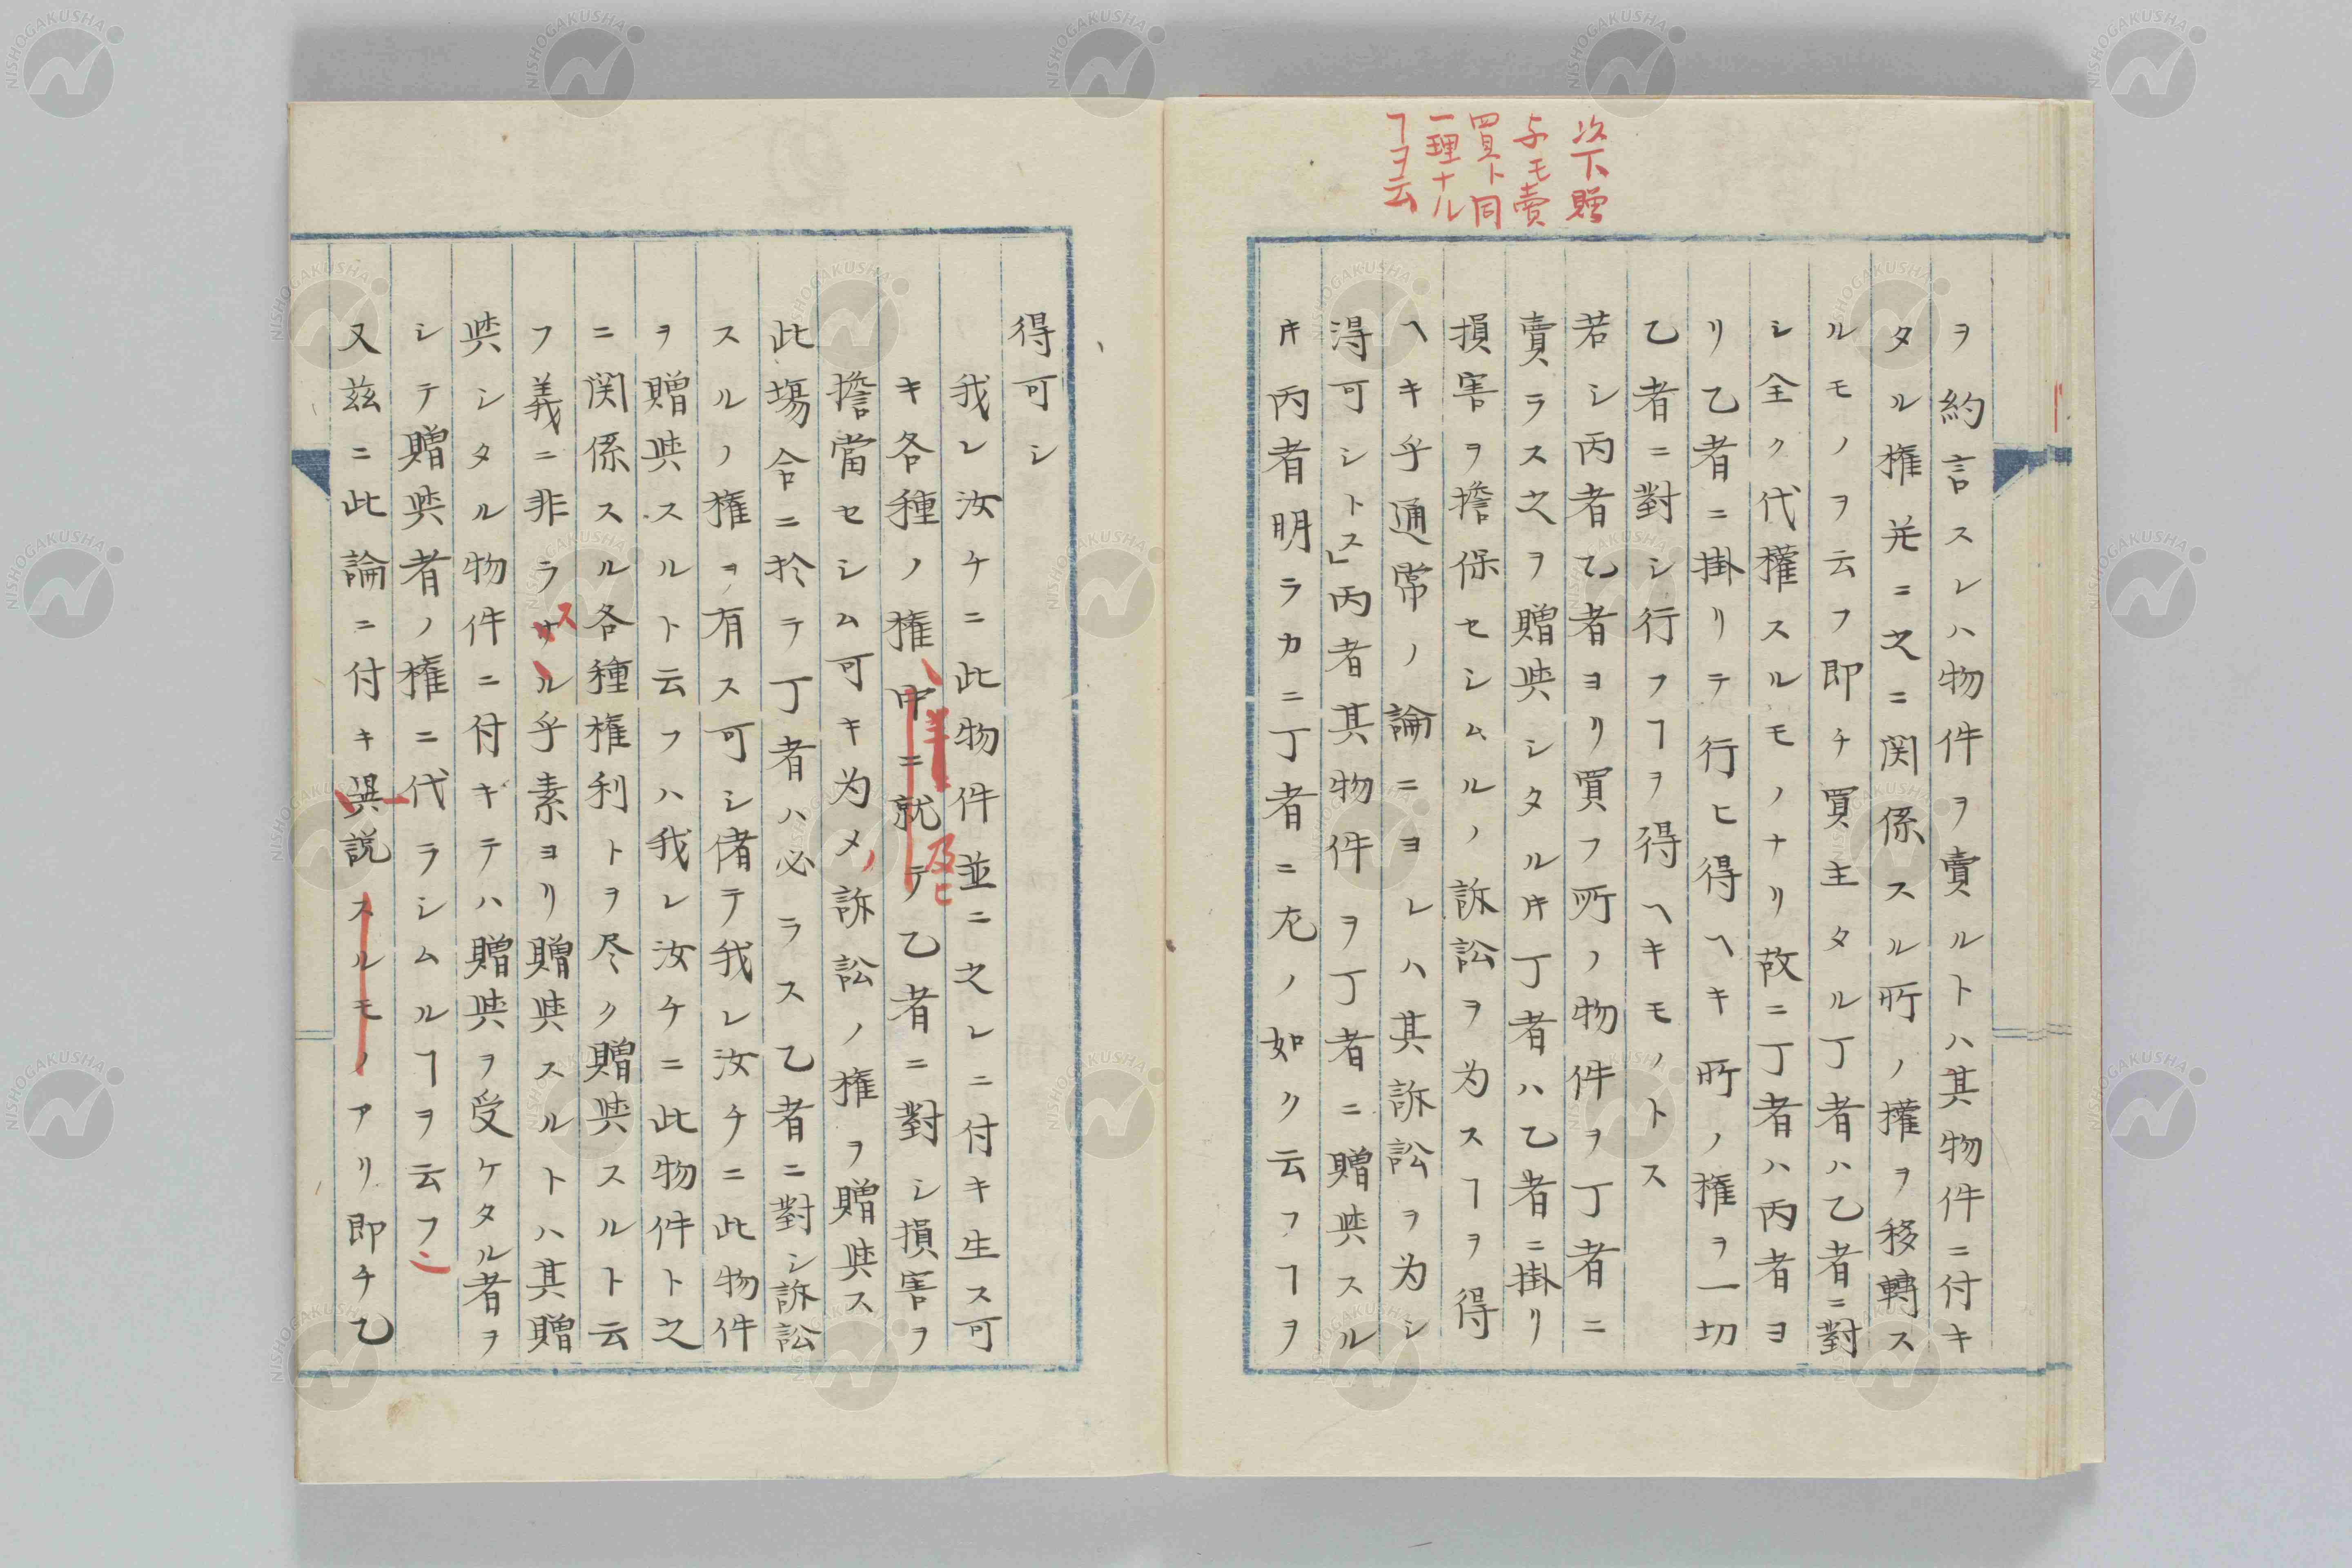 次下贈
与モ賣
買ト同
一理ナル
ヿヲ云
ヲ約言スレハ物件ヲ賣ルトハ其物件ニ付キ
タル権并ニ之ニ関係スル所ノ権ヲ移轉ス
ルモノヲ云フ即チ買主タル丁者ハ乙者ニ對
シ全ク代権スルモノナリ故ニ丁者ハ丙者ヨ
リ乙者ニ掛リテ行ヒ得ヘキ所ノ権ヲ一切
乙者ニ對シ行フヿヲ得ヘキモノトス
若シ丙者乙者ヨリ買フ所ノ物件ヲ丁者ニ
賣ラス之ヲ贈與シタル𪜈丁者ハ乙者ニ掛リ
損害ヲ擔保セシムルノ訴訟ヲ为スヿヲ得
ヘキ乎通常ノ論ニヨレハ其訴訟ヲ为シ
得可シトス」丙者其物件ヲ丁者ニ贈與スル
𪜈丙者明ラカニ丁者ニ左ノ如ク云フヿヲ
得可シ
我レ汝ケニ此物件並ニ之レニ付キ生ス可
キ各種ノ権、中ニ就テ乙者ニ對シ損害ヲ
擔當セシム可キ为メノ訴訟ノ権ヲ贈與ス
此塲合ニ於テ丁者ハ必ラス乙者ニ對シ訴訟
スルノ権ヲ有ス可シ偖テ我レ汝チニ此物件
ヲ贈與スルト云フハ我レ汝チニ此物件ト之
ニ関係スル各種権利トヲ尽ク贈與スルト云
フ義ニ非ラサルス乎素ヨリ贈與スルトハ其贈
與シタル物件ニ付キテハ贈與ヲ受ケタル者ヲ
シテ贈與者ノ権ニ代ラシムルヿヲ云フ
又茲ニ此論ニ付キ異説スルモノアリ即チ乙
NISHOGAKUSHA